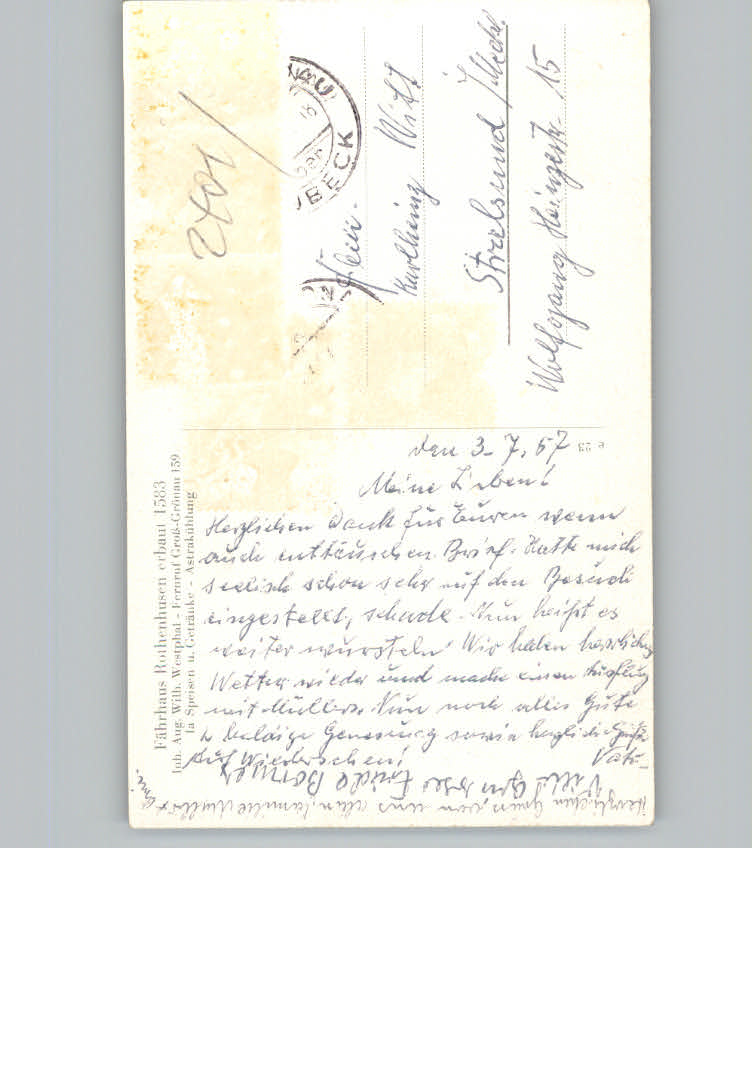 Fährhaus Rothenhusen erbaut 1583
Inh. Aug. Wilh. Westphal - Fernruf Groß-Grönau 159
la Speisen u. Getränke - Astrakühlung
den 3. 7. 57
Meine Lieben!
Herzlichen Dank für Euren wenn
auch enttäuschen Brief. Hatte mich
seelisch schon sehr auf den Besuch
eingestellt, schade. Nun heißt es
weiter wursteln. Wir haben herrliches
Wetter wieder und mache einen Ausflug
mit Müllers. Nun noch alles Gute
u. baldige Genesung sowie herzliche Grüße
Auf Wiedersehen! Vati
Viele Grüße Frieda
Herzlichen Gruß von uns allen Familie Müller
2401
BECK
Karlheinz Witt
Stralsund /Meckl.
Wolfgang Heinzestr. 15
e 23